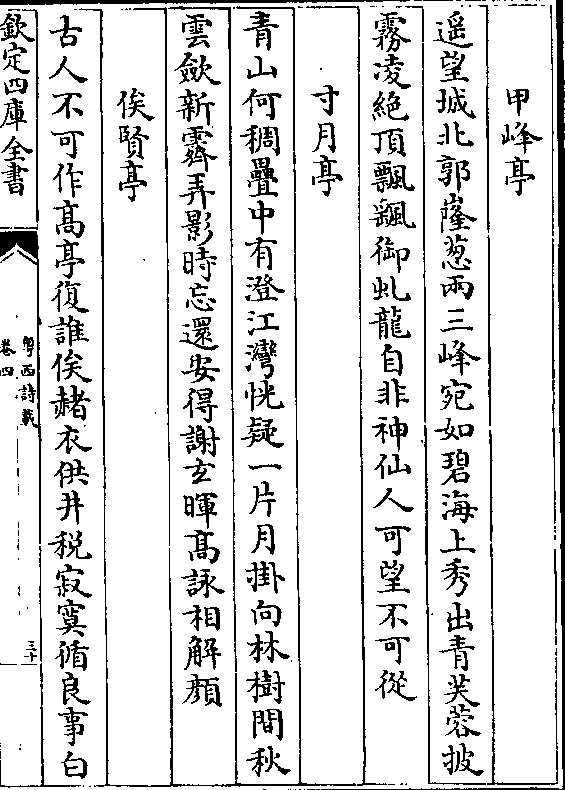 甲峰亭
遥望城北郭㠥葱兩三峰宛如碧海上秀出青芙蓉披
霧凌絶頂飄飖御虬龍自非神仙人可望不可從
寸月亭
青山何稠疊中有澄江灣恍疑一片月掛向林樹間秋
雲斂新霽弄影時忘還安得謝玄暉髙詠相解顔
俟賢亭
古人不可作髙亭復誰俟赭衣供井税寂寞循良事白
欽定四庫全書
粤西詩載
卷四
三十